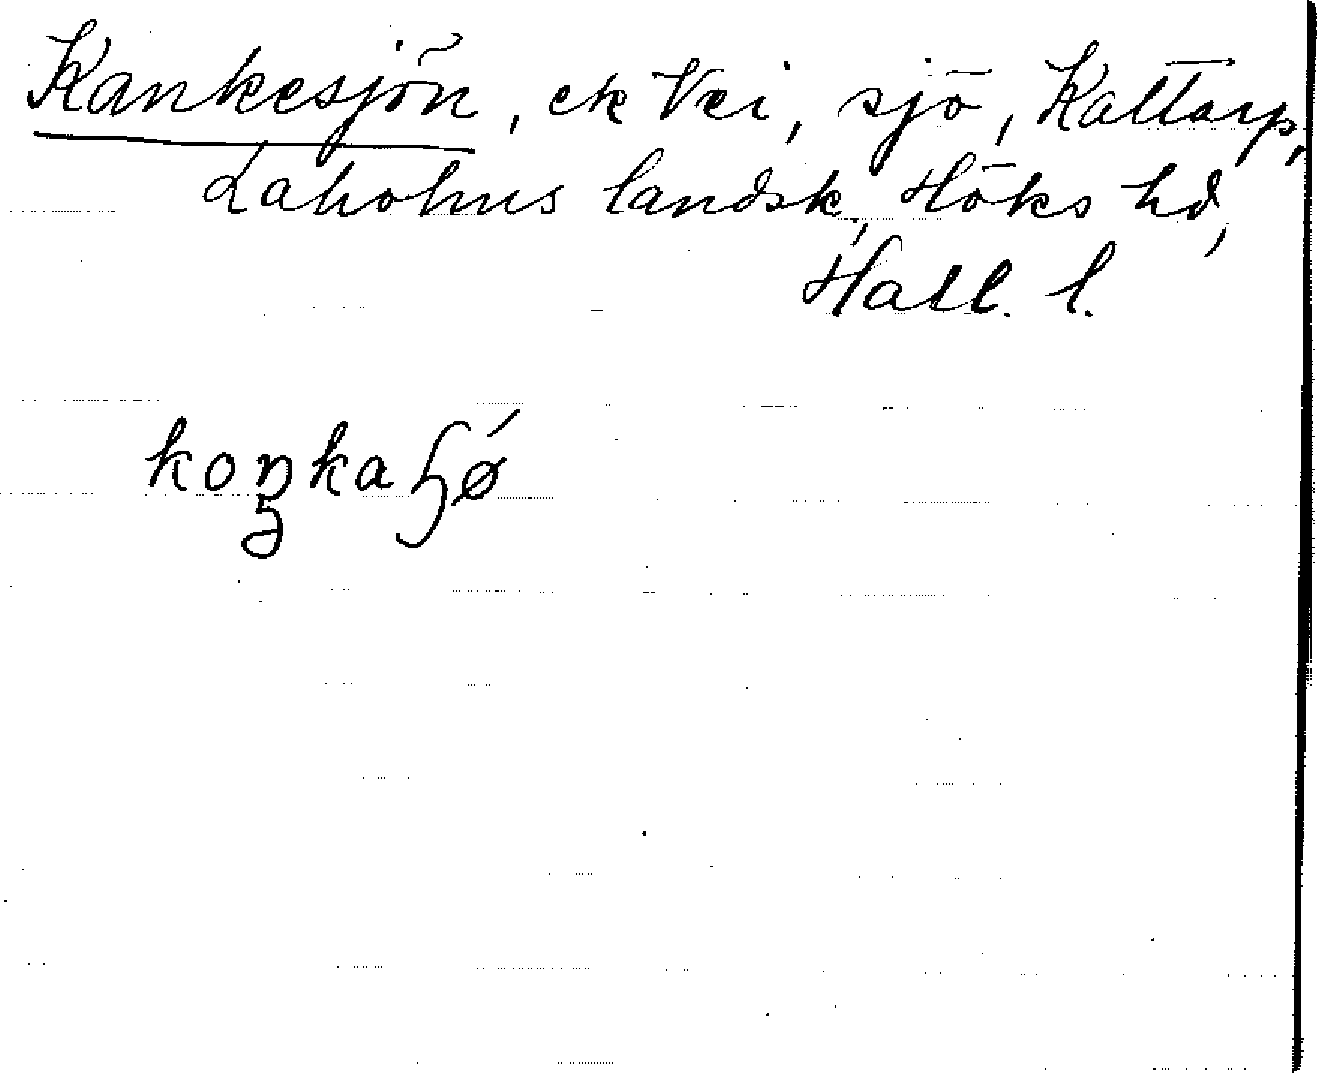 Kankesjön, ek Vxi, sjö, Kattarp,
Laholms landsk, Höks hd,
Hall. l.
koŋkaʃø´